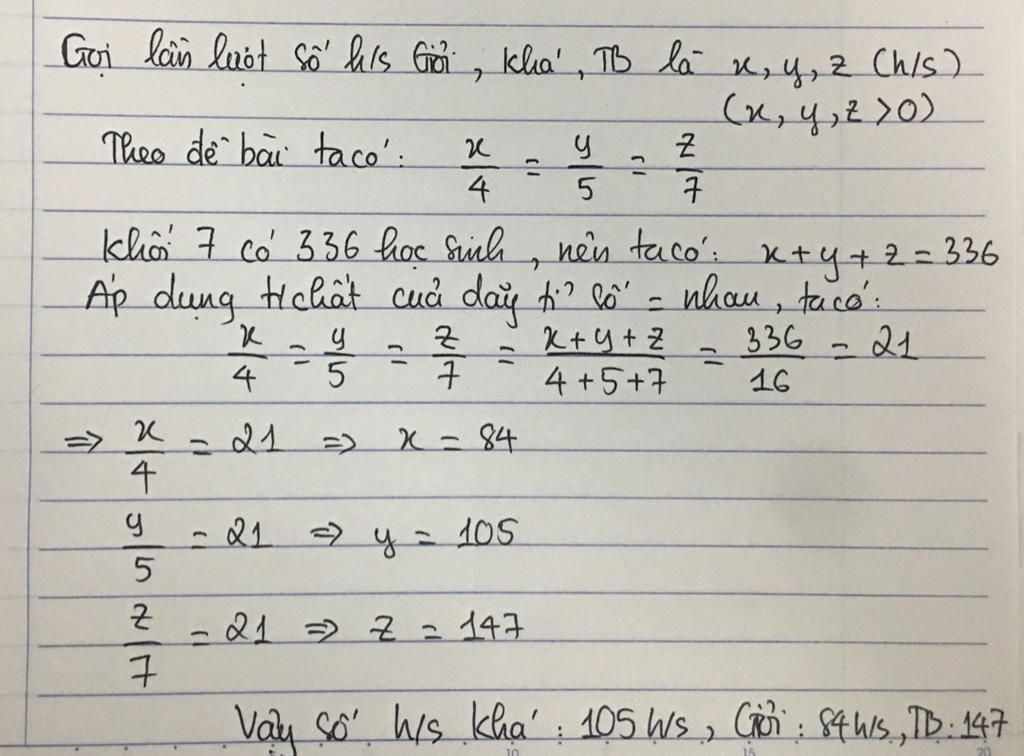 Gọi lần lượt số h/s Giỏi, khá, TB là x, y, z (h/s)
(x, y, z > 0)
Theo đề bài ta có: x/4 = y/5 = z/7
Khối 7 có 336 học sinh, nên ta có: x + y + z = 336
Áp dụng t/chất của dãy tỉ số = nhau, ta có:
x/4 = y/5 = z/7 = (x + y + z)/(4 + 5 + 7) = 336/16 = 21
⇒ x/4 = 21 ⇒ x = 84
y/5 = 21 ⇒ y = 105
z/7 = 21 ⇒ z = 147
Vậy số h/s khá: 105 h/s, Giỏi: 84 h/s, TB: 147
10 15 20